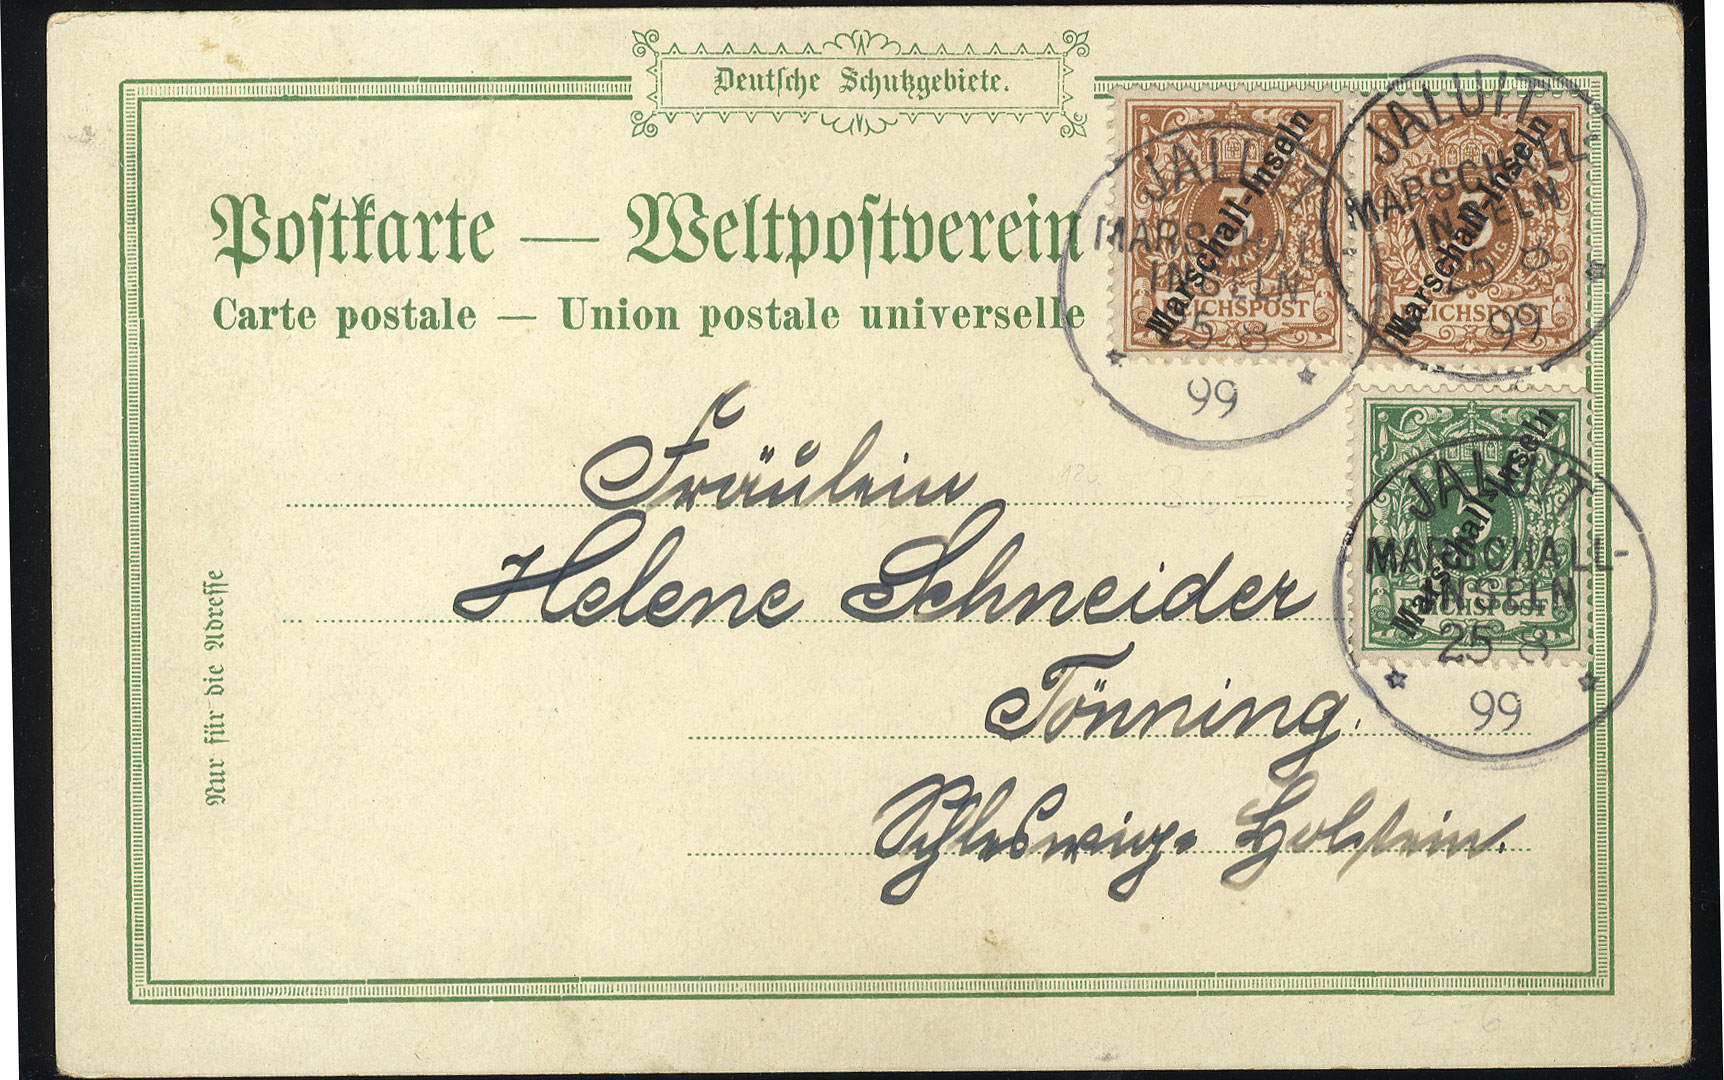 Deutsche Schutzgebiete.
Postkarte — Weltpostverein
Carte postale — Union postale universelle
Marschall-Inseln
REICHSPOST
JALUIT
MARSCHALL-
INSELN
25 8
99
Marschall-Inseln
REICHSPOST
JALUIT
MARSCHALL-
INSELN
25 8
99
Marschall-Inseln
REICHSPOST
JALUIT
MARSCHALL-
INSELN
25 8
99
Fräulein
Helene Schneider
Tönning.
Schleswig-Holstein.
Nur für die Adresse